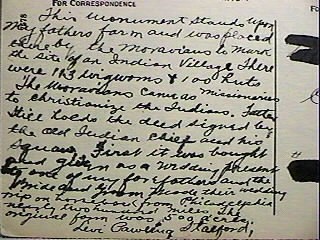 FOR CORRESPONDENCE
This monument stands upon
my fathers farm and was placed
there by the Moravians to mark
the site of an Indian Village There
were 113 wigwoms & 100 huts
The Moravians came as missionaries
to christianize the Indians. Father
still holds the deed signed by
the old Indian Chief and his
squaw. First it was bought
and given as a wedding present
by one of our forfathers and the
bride and groom made their wedding
trip on horseback from Philadelphia
nearly two hundred miles. The
original farm was 500 acres.
Levi Pawling Stalford,